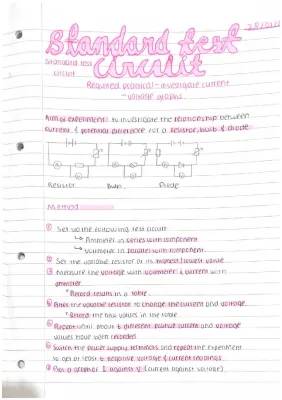 Standard test
circuit
Standard test
circuit
Required practical - investigate current
- voltage graphs
Aim of experiment: to investigate the relationship between
current & potential difference for a resistor, bulb & diode
Resistor Bulb Diode
Method
① Set up the following test circuit
↳ Ammeter in series with component
↳ Voltmeter in parallel with component
② Set the variable resistor to its highest/lowest value
③ Measure the voltage with voltmeter & current with
ammeter
• Record results in a table
④ Alter the variable resistor to change the current and voltage.
• Record the new values in the table
⑤ Repeat until about 6 different positive current and voltage
values have been recorded
⑥ Switch the power supply terminals and repeat the experiment
to get at least 6 negative voltage & current readings
⑦ Plot a graph of I against V (current against voltage)